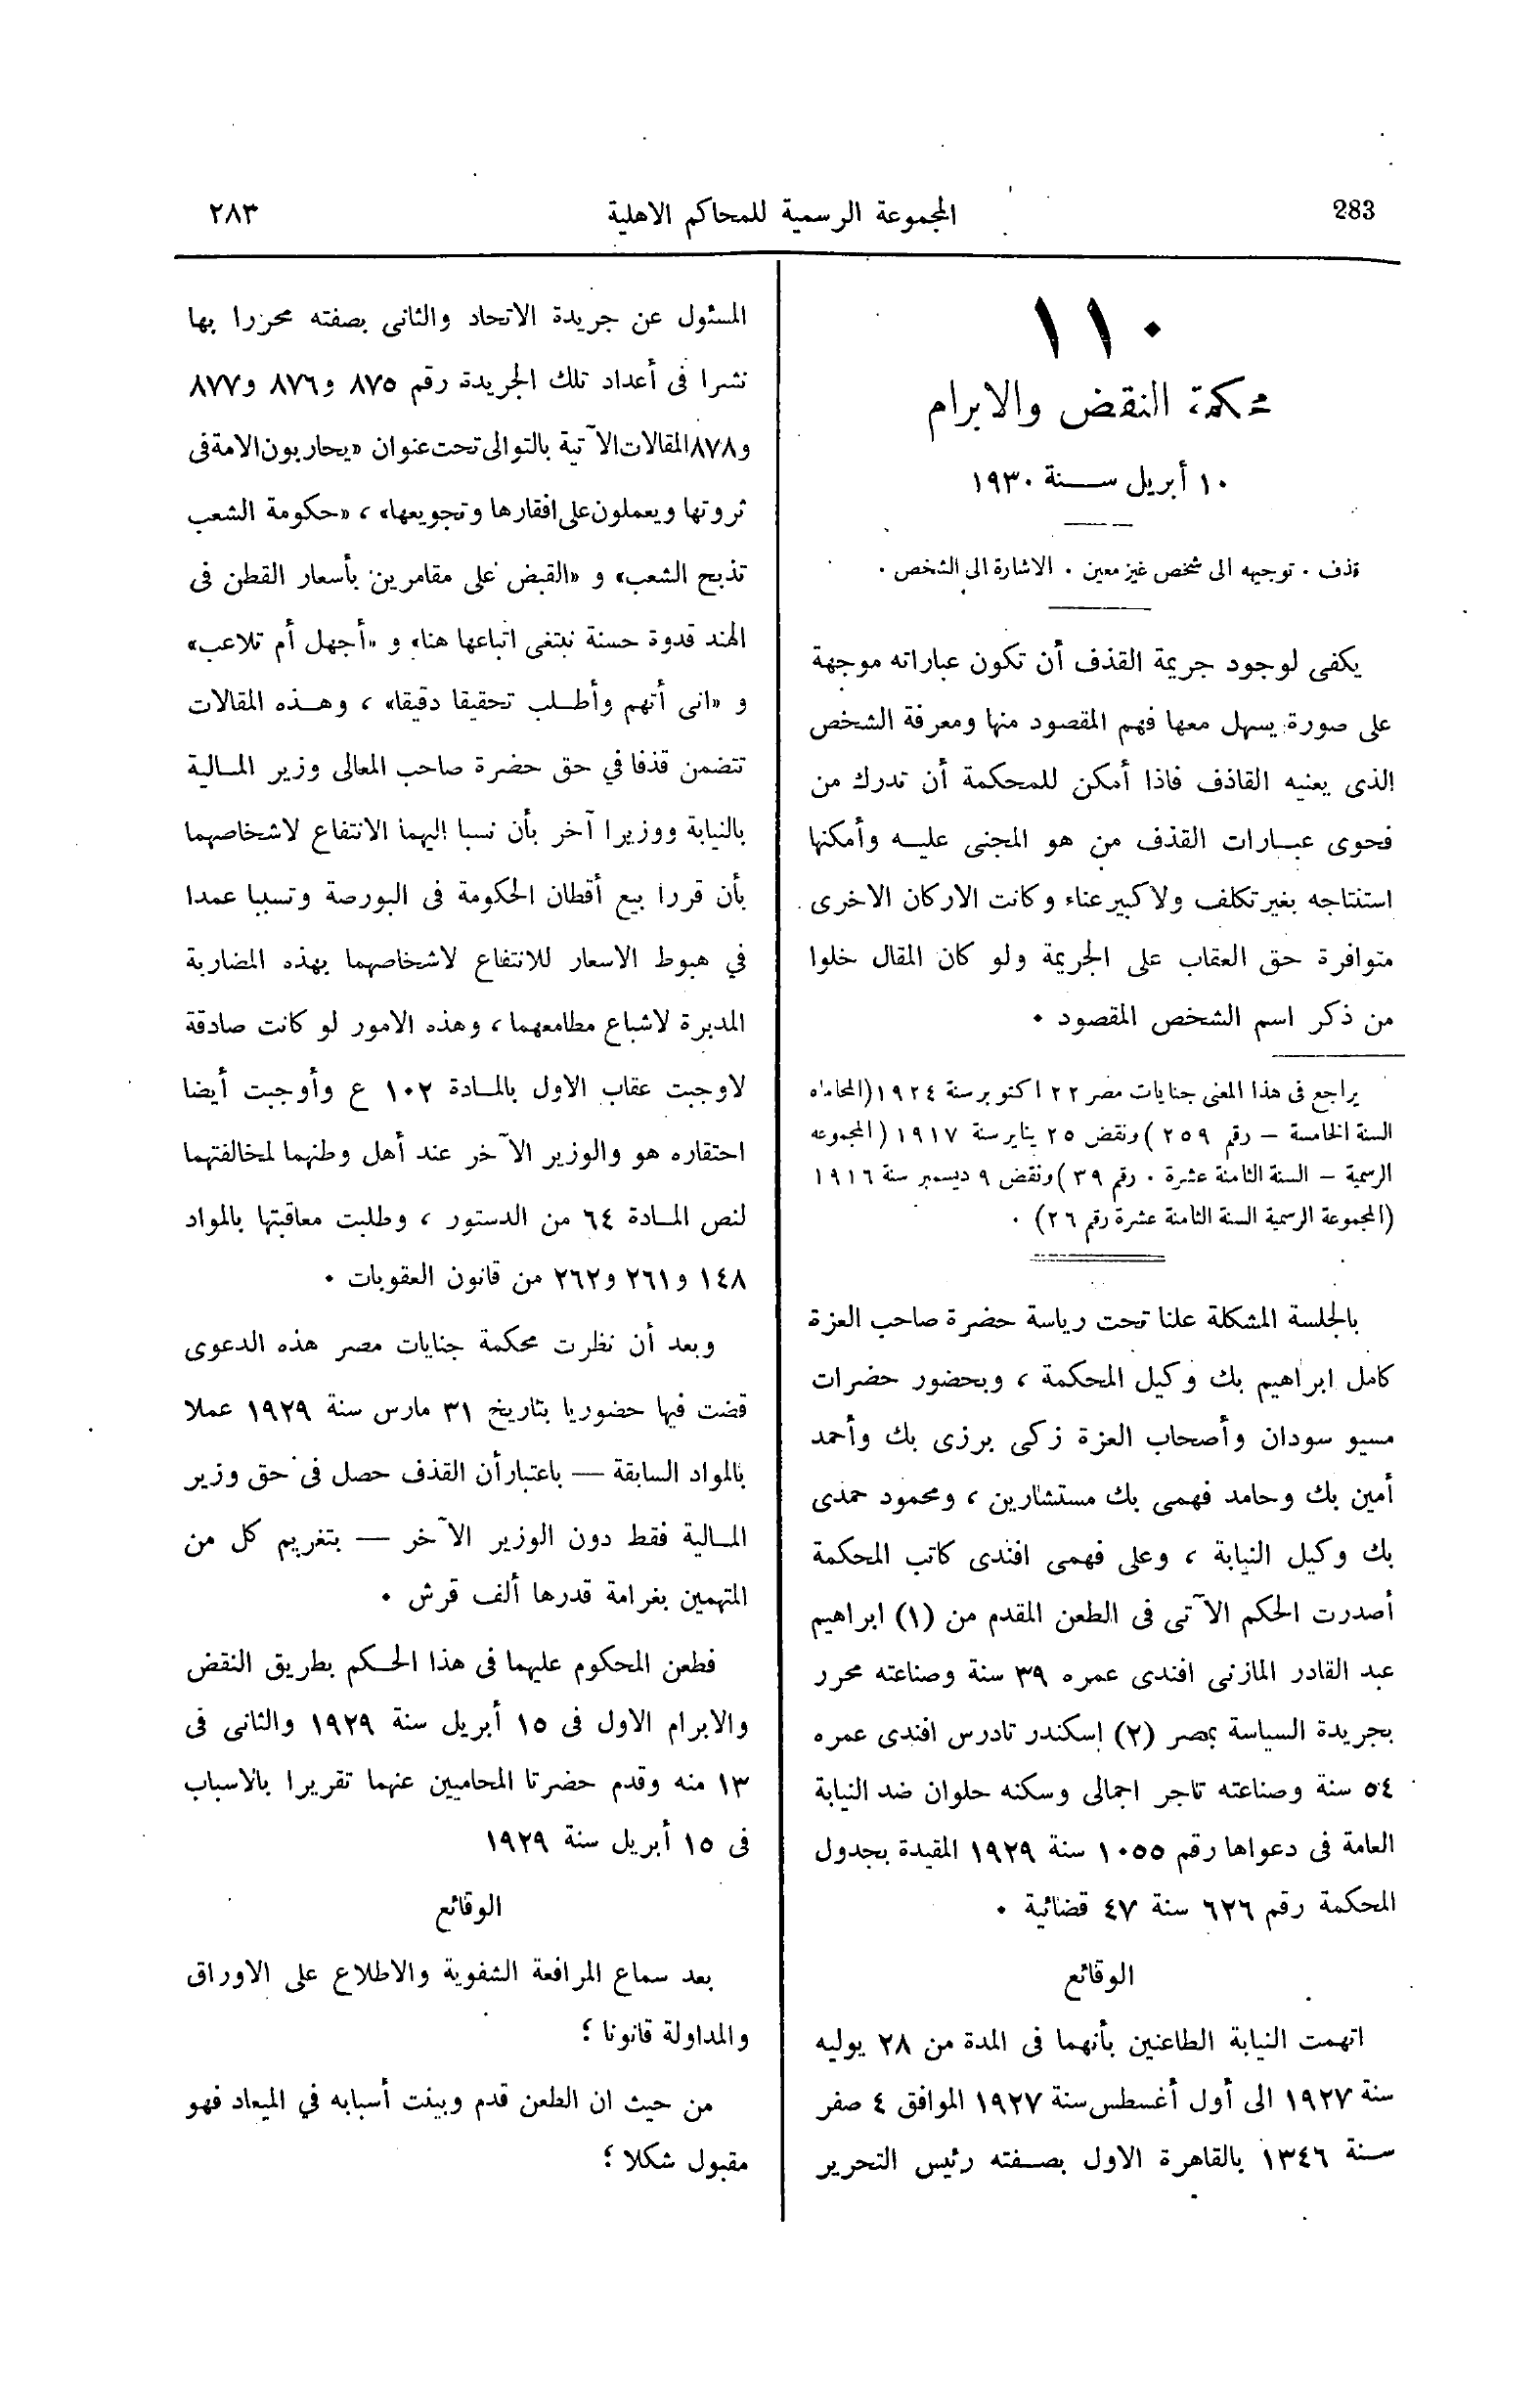 283
المجموعة الرسمية للمحاكم الاهلية
٢٨٣
١١٠
محكمة النقض والابرام
١٠ أبريل سنة ١٩٣٠
قذف . توجيهه الى شخص غير معين . الاشارة الى الشخص .
يكفى لوجود جريمة القذف أن تكون عباراته موجهة
على صورة يسهل معها فهم المقصود منها ومعرفة الشخص
الذى يعنيه القاذف فاذا أمكن للمحكمة أن تدرك من
فحوى عبارات القذف من هو المجنى عليه وأمكنها
استنتاجه بغير تكلف ولا كبير عناء وكانت الاركان الاخرى
متوافرة حق العقاب على الجريمة ولو كان المقال خلوا
من ذكر اسم الشخص المقصود .
يراجع فى هذا المعنى جنايات مصر ٢٢ اكتوبر سنة ١٩٢٤ (المحاماه
السنة الخامسة – رقم ٢٥٩) ونقض ٢٥ يناير سنة ١٩١٧ (المجموعه
الرسمية – السنة الثامنة عشرة . رقم ٣٩) ونقض ٩ ديسمبر سنة ١٩١٦
(المجموعة الرسمية السنة الثامنة عشرة رقم ٢٦) .
بالجلسة المشكلة علنا تحت رياسة حضرة صاحب العزة
كامل ابراهيم بك وكيل المحكمة ، وبحضور حضرات
مسيو سودان وأصحاب العزة زكى برزى بك وأحمد
أمين بك وحامد فهمى بك مستشارين ، ومحمود حمدى
بك وكيل النيابة ، وعلى فهمى افندى كاتب المحكمة
أصدرت الحكم الآتى فى الطعن المقدم من (١) ابراهيم
عبد القادر المازنى افندى عمره ٣٩ سنة وصناعته محرر
بجريدة السياسة بمصر (٢) إسكندر تادرس افندى عمره
٥٤ سنة وصناعته تاجر اجمالى وسكنه حلوان ضد النيابة
العامة فى دعواها رقم ١٠٥٥ سنة ١٩٢٩ المقيدة بجدول
المحكمة رقم ٦٢٦ سنة ٤٧ قضائية .
الوقائع
اتهمت النيابة الطاعنين بأنهما فى المدة من ٢٨ يوليه
سنة ١٩٢٧ الى أول أغسطس سنة ١٩٢٧ الموافق ٤ صفر
سنة ١٣٤٦ بالقاهرة الاول بصفته رئيس التحرير
المسئول عن جريدة الاتحاد والثانى بصفته محررا بها
نشرا فى أعداد تلك الجريدة رقم ٨٧٥ و٨٧٦ و٨٧٧
و٨٧٨ المقالات الآتية بالتوالى تحت عنوان «يحاربون الامة فى
ثروتها ويعملون على افقارها وتجويعها» ، «حكومة الشعب
تذبح الشعب» و «القبض على مقامرين بأسعار القطن فى
الهند قدوة حسنة نبتغى اتباعها هنا» و «أجهل أم تلاعب»
و «انى أتهم وأطلب تحقيقا دقيقا» ، وهذه المقالات
تتضمن قذفا في حق حضرة صاحب المعالى وزير المالية
بالنيابة ووزيرا آخر بأن نسبا إليهما الانتفاع لاشخاصهما
بأن قررا بيع أقطان الحكومة فى البورصة وتسببا عمدا
في هبوط الاسعار للانتفاع لاشخاصهما بهذه المضاربة
المدبرة لاشباع مطامعهما ، وهذه الامور لو كانت صادقة
لاوجبت عقاب الاول بالمادة ١٠٢ ع وأوجبت أيضا
احتقاره هو والوزير الآخر عند أهل وطنهما لمخالفتهما
لنص المادة ٦٤ من الدستور ، وطلبت معاقبتها بالمواد
١٤٨ و٢٦١ و٢٦٢ من قانون العقوبات .
وبعد أن نظرت محكمة جنايات مصر هذه الدعوى
قضت فيها حضوريا بتاريخ ٣١ مارس سنة ١٩٢٩ عملا
بالمواد السابقة — باعتبار أن القذف حصل فى حق وزير
المالية فقط دون الوزير الآخر — بتغريم كل من
المتهمين بغرامة قدرها ألف قرش .
فطعن المحكوم عليهما فى هذا الحكم بطريق النقض
والابرام الاول فى ١٥ أبريل سنة ١٩٢٩ والثانى فى
١٣ منه وقدم حضرتا المحاميين عنهما تقريرا بالاسباب
فى ١٥ أبريل سنة ١٩٢٩
الوقائع
بعد سماع المرافعة الشفوية والاطلاع على الاوراق
والمداولة قانونا ؛
من حيث ان الطعن قدم وبينت أسبابه في الميعاد فهو
مقبول شكلا ؛